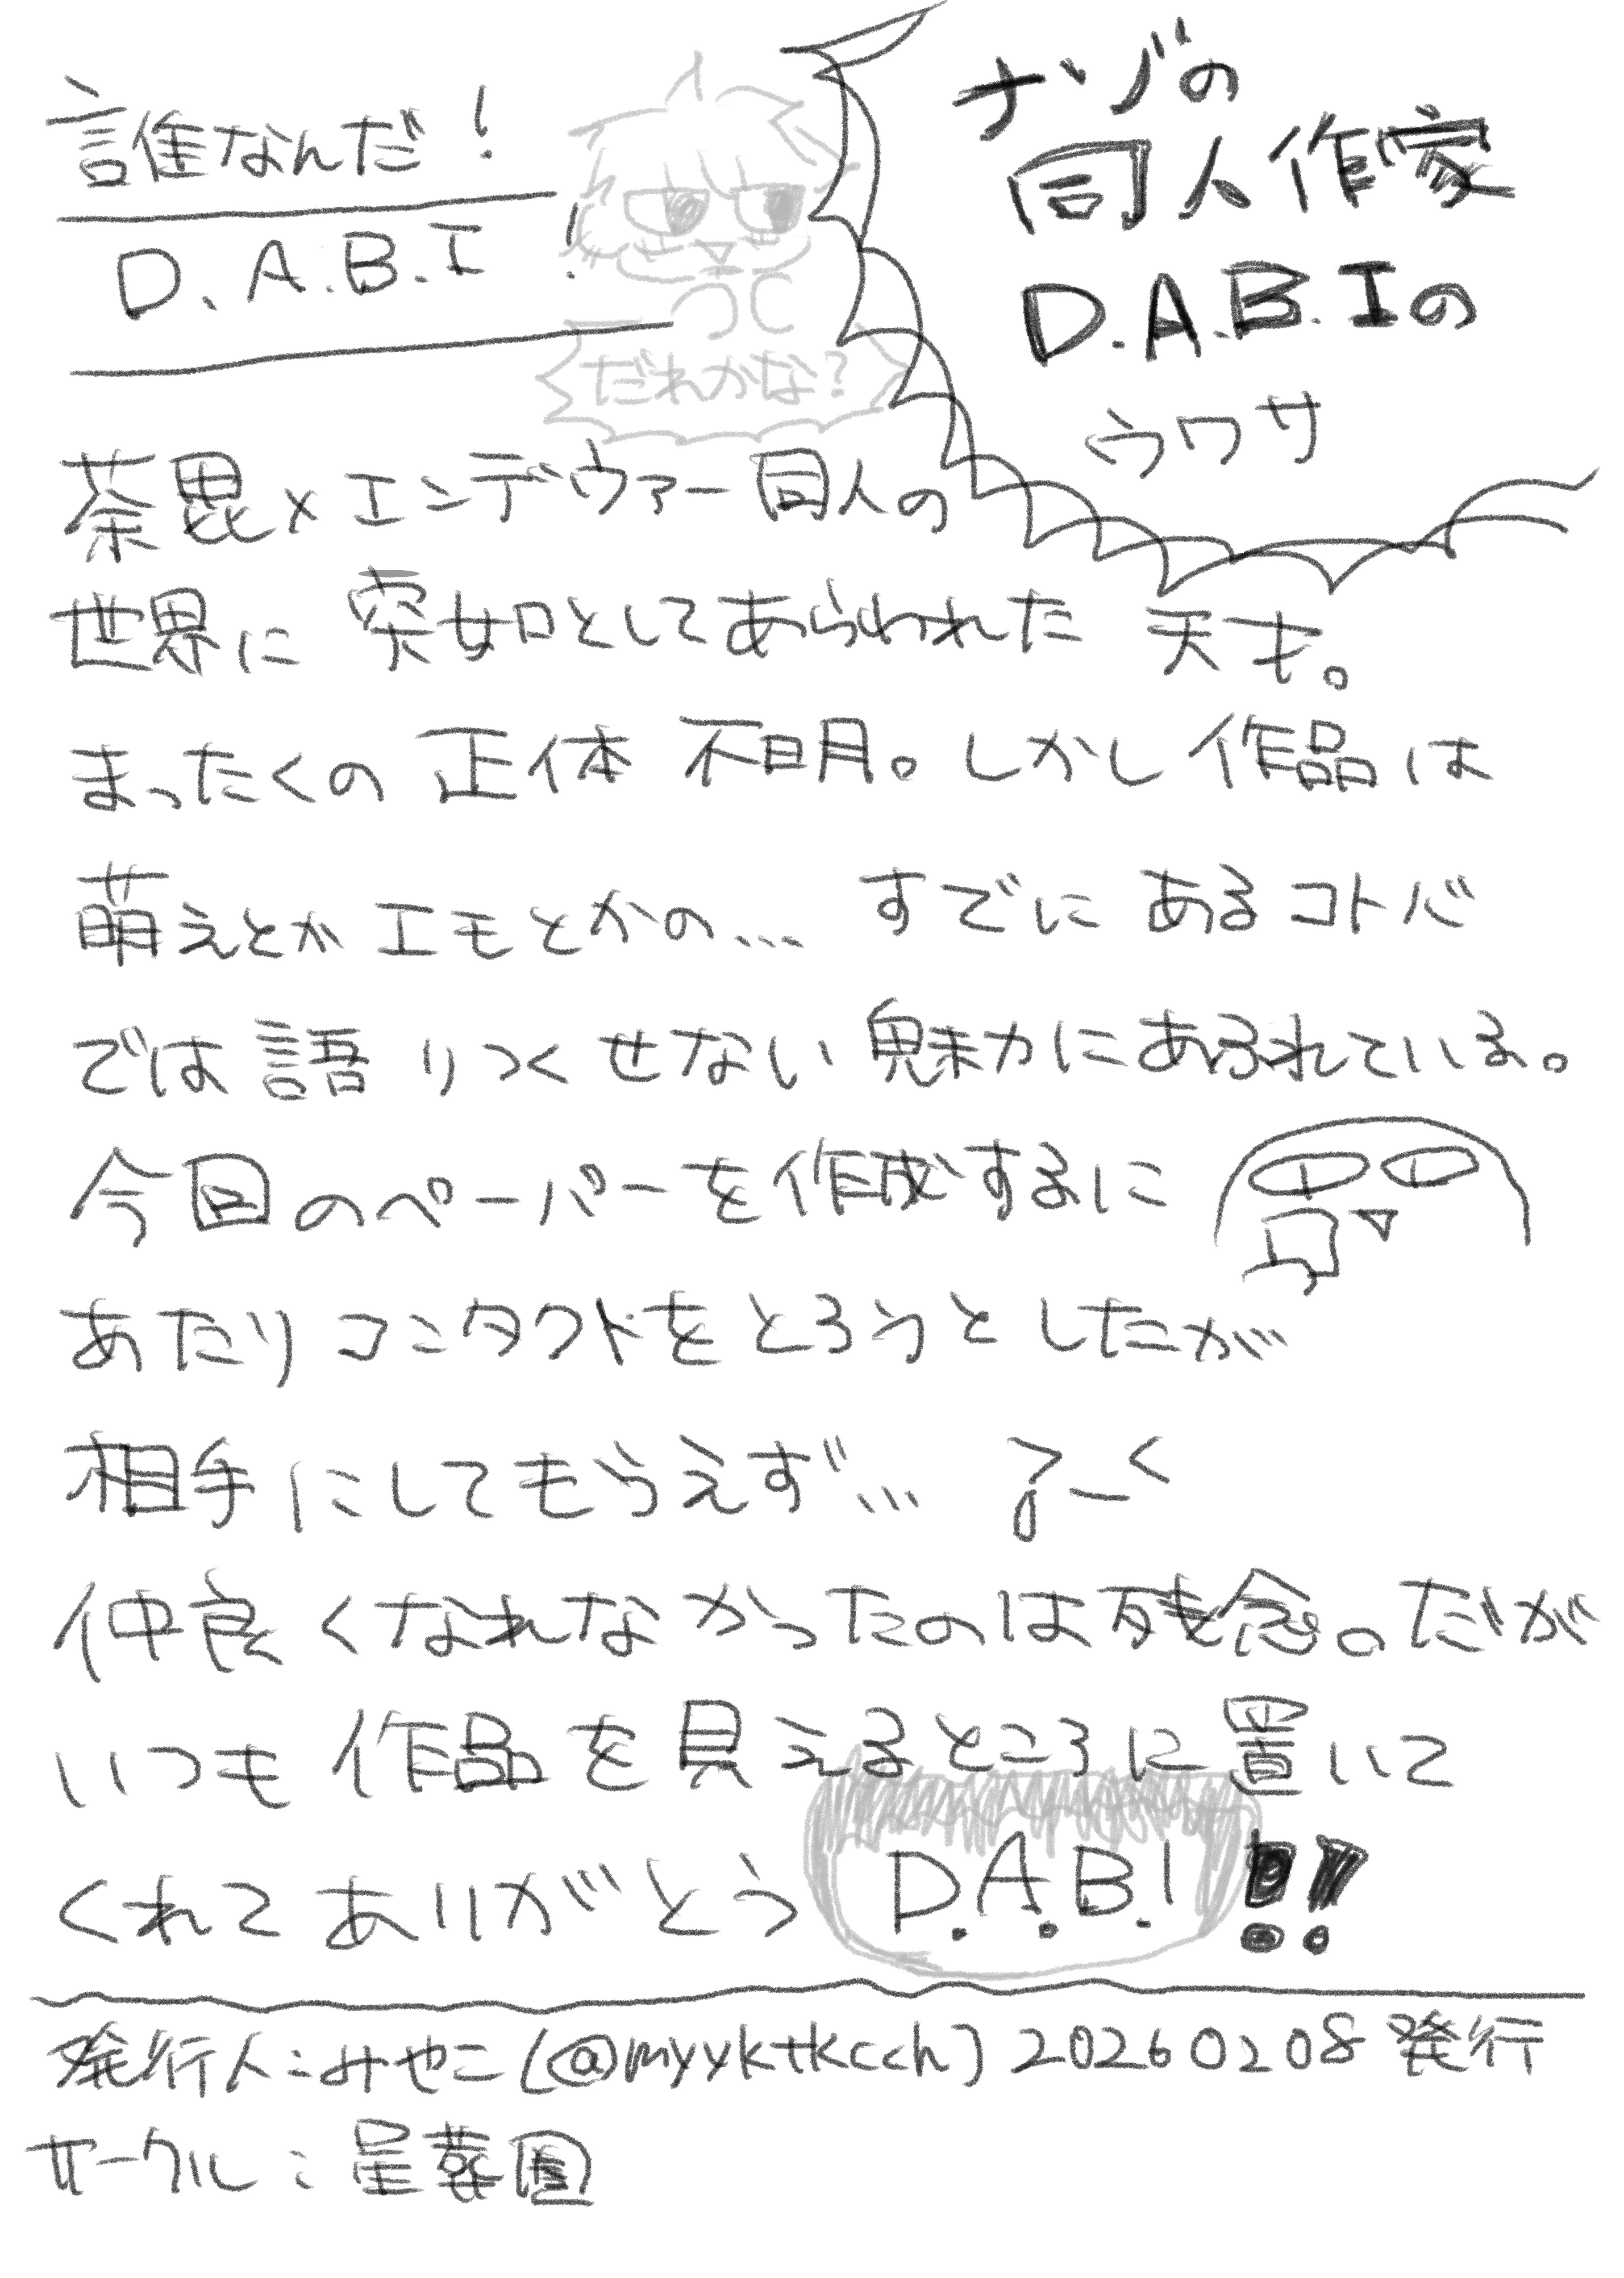 ナゾの
同人作家
D.A.B.Iの
ウワサ
誰なんだ!
D.A.B.I!
だれかな?
荼毘×エンデヴァー同人の
世界に 突如としてあらわれた 天才。
まったくの 正体 不明。しかし 作品は
萌えとか エモとかの… すでに ある コトバ
では 語りつくせない 魅力にあふれている。
今回のペーパーを作成するに
あたり コンタクトを とろうと したが
相手にしてもらえず…
仲良くなれなかったのは残念。だが
いつも 作品を見えるところに置いて
くれて ありがとう D.A.B.I!!
発行人:みやこ(@myyktkcch) 20260208 発行
サークル:星葬園